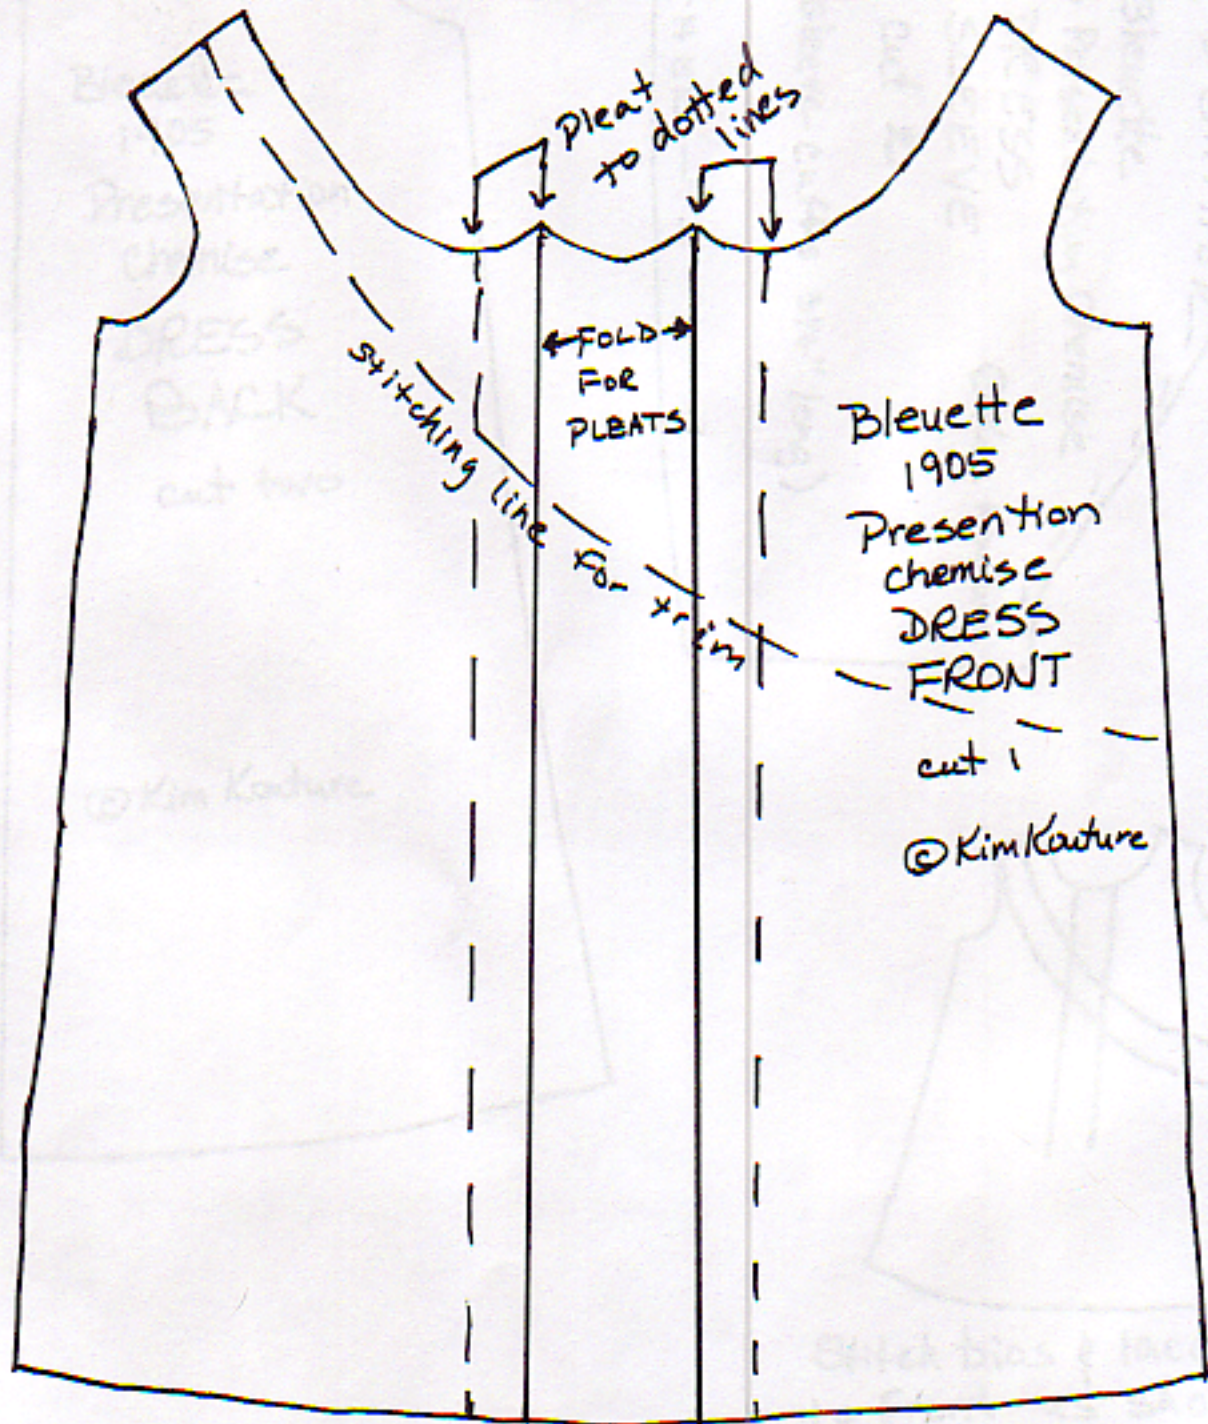 Pleat
to dotted
lines
FOLD
FOR
PLEATS
stitching line for trim
Bleuette
1905
Presention
chemise
DRESS
FRONT
cut 1
© Kim Kouture
Bleuette
1905
Presentation
Chemise
DRESS
BACK
cut two
© Kim Kouture